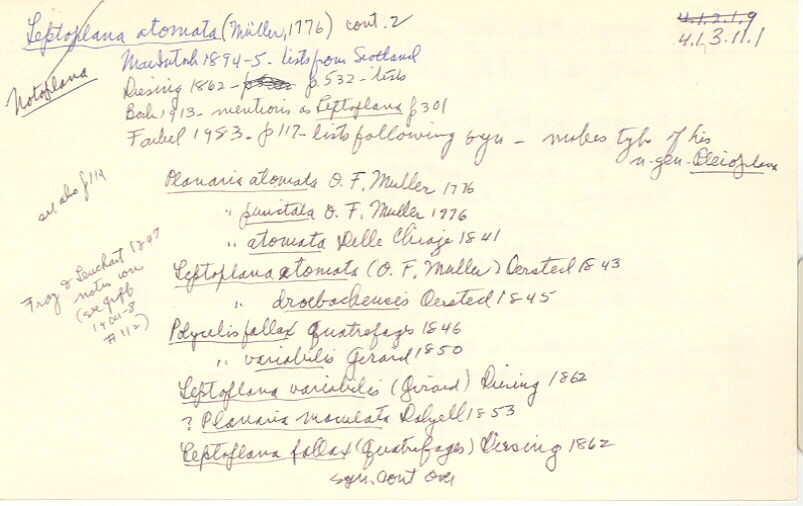 4.1.2.1.9
Leptoplana atomata (Müller, 1776) cont. 2
4.1.3.11.1
Notoplana
MacIntosh 1894-5 - lists from Scotland
Diesing 1862 - p. 532 - lists
Bock 1913 - mentions as Leptoplana p 301
Faubel 1983 - p 117 - lists following syn - makes type of his
n. gen. Pleioplana
see also p 114
Planaria atomata O. F. Muller 1776
" punctata O. F. Muller 1776
" atomata Delle Chiaje 1841
Leptoplana atomata (O. F. Muller) Oersted 1843
" droebachensis Oersted 1845
Frey & Leuckart 1847
notes on
(see Graff
1904-8
# 112)
Polycelis fallax Quatrefages 1846
" variabilis Girard 1850
Leptoplana variabilis (Girard) Diesing 1862
? Planaria maculata Dalyell 1853
Leptoplana fallax (Quatrefages) Diesing 1862
syn. cont over